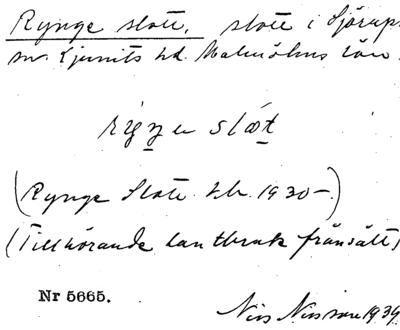 Rynge slott, slott i Sjörups
sn. Ljunits hd. Malmöhus län.
(Rynge Slott. 1930-.)
(Tillhörande lantbruk frånsålt)
Nr 5665.
Nils Nilsson 1939.